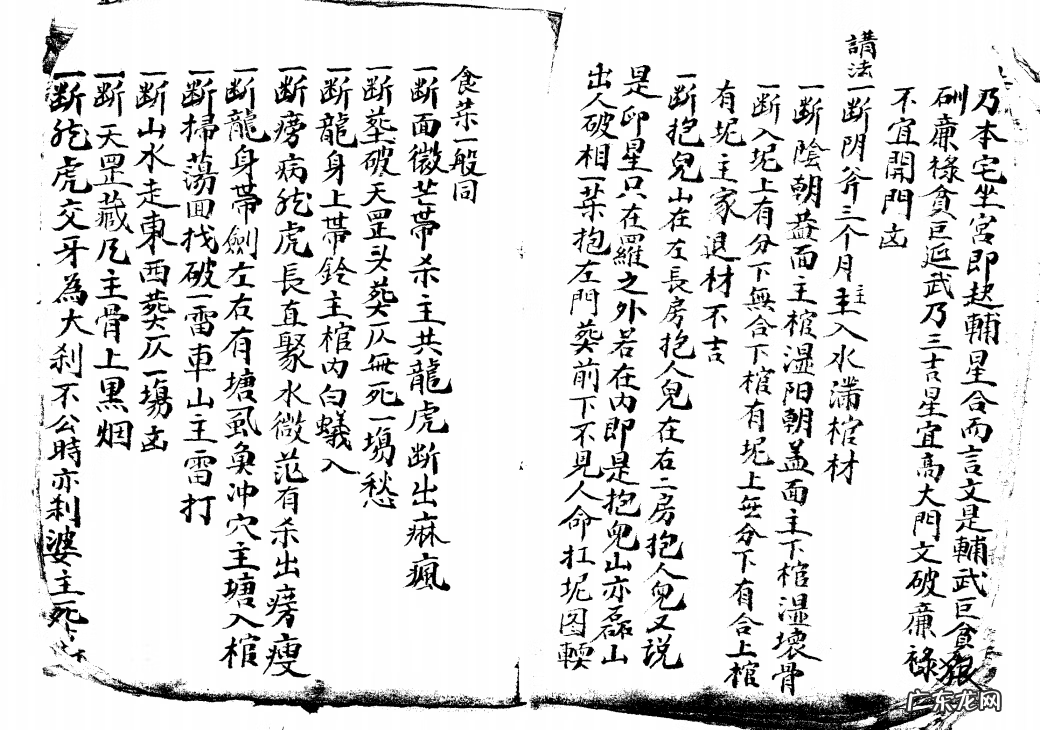 乃本宅坐宮即起輔星合而言文是輔武巨貪狼
廉祿貪巨延武乃三吉星宜高大門文破廉祿
不宜開門凶
講法
一断阴斧三个月主入水满棺材
一断陰朝葢面主棺湿阳朝盖面主下棺湿壊骨
一断入坭上有分下無合下棺有坭上無分下有合上棺
有坭主家退材不吉
一断抱兒山在左長房抱人兒在右二房抱人兒又説
是卽星只在羅之外若在內即是抱兒山亦磊山
出人破相一葉抱左門葵前下不見人命扛坭图
食菜一般同
一断面微芒带杀主共龍虎断出痳瘋
一断墪破天罡头葬仄無死一塲愁
一断龍身上带鈴主棺内白蟻入
一断痨病龍虎長直聚水微范有杀出痨瘦
一断龍身带劍左右有塘虱奐冲穴主塘入棺
一断掃蕩面找破一雷車山主雷打
一断山水走東西葬仄一塲凶
一断天罡藏凡主骨上黒烟
一断龍虎交牙為大刹不公時亦刹婆主死
广东龙网